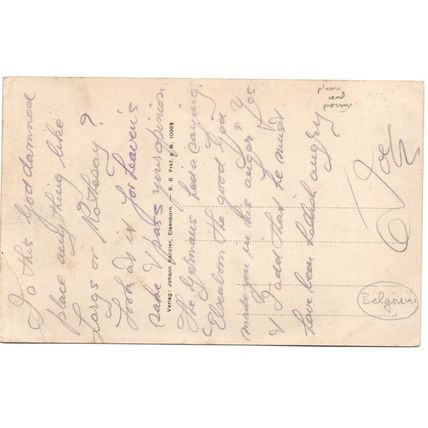 Is this Goddamned
place anything like
Largs or Rothesay?
Look at it for heaven's
sake & pass your opinion
The Germans had a saying,
"Elsenborn the good God
made you in his anger" Yes
& I add that he must
have been hellish angry
Joe
Verlag: Johann Kanzler, Elsenborn. — R. R. Frkf. a. M. 10063
please
read
message
Belgium